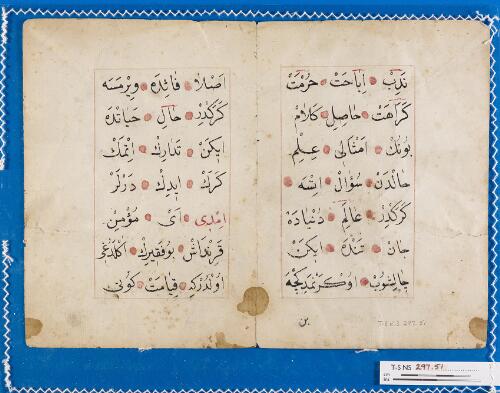 ندب اباحت حرمت
كراهت حاصل كلام
بونك امثالى علم
حالندن سؤال ايتسه
كركدر عالم دنياده
جان تنده ايكن
چالشوب اوكرنمديكجه
بن
اصلا فائده ويرمسه
كركدر حال حياتده
ايكن تدارك ايتمك
كرك ايدك ديرلر
امدى اى مؤمن
قرنداش بو فقيرك اكلدوغى
اولدركه قيامت كونى
T-S NS 297.51
T-S NS 297.51